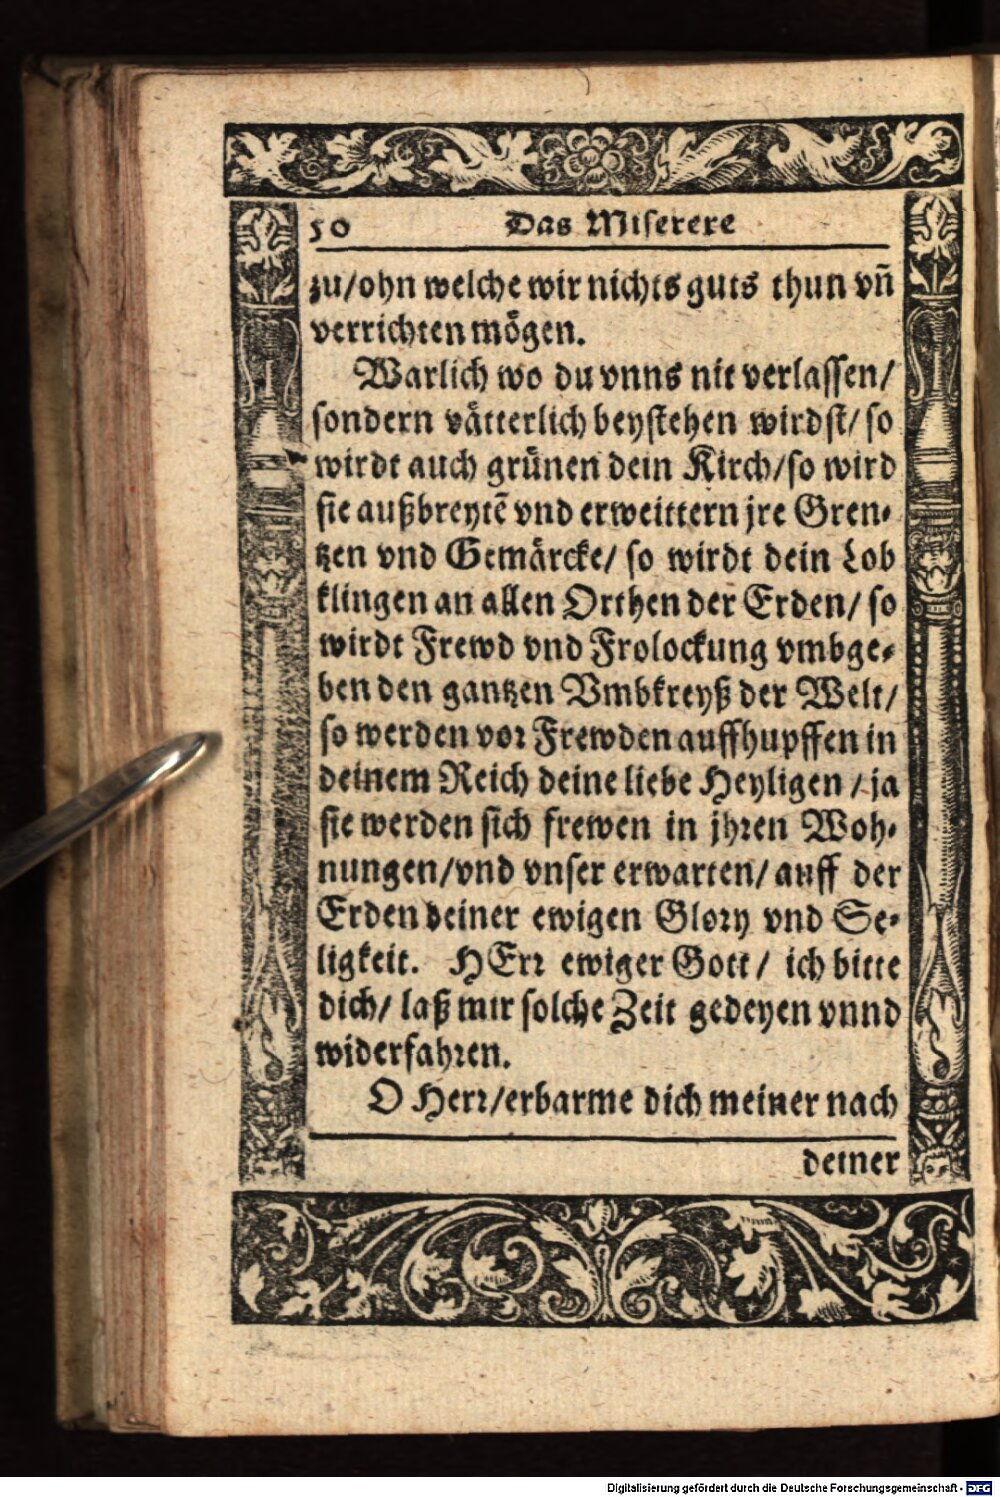 50 Das Miserere
zu/ohn welche wir nichts guts thun vñ
verrichten mögen.
Warlich wo du vnns nit verlassen/
sondern vätterlich beystehen wirdst/ so
wirdt auch grünen dein Kirch/so wird
sie außbreytẽ vnd erweittern jre Gren-
tzen vnd Gemärcke/ so wirdt dein Lob
klingen an allen Orthen der Erden/ so
wirdt Frewd vnd Frolockung vmbge-
ben den gantzen Vmbkreyß der Welt/
so werden vor Frewden auffhupffen in
deinem Reich deine liebe Heyligen / ja
sie werden sich frewen in jhren Woh-
nungen/vnd vnser erwarten/ auff der
Erden deiner ewigen Glory vnd Se-
ligkeit. HErr ewiger Gott/ ich bitte
dich/ laß mir solche Zeit gedeyen vnnd
widerfahren.
O Herr/erbarme dich meiner nach
deiner
Digitalisierung gefördert durch die Deutsche Forschungsgemeinschaft - DFG